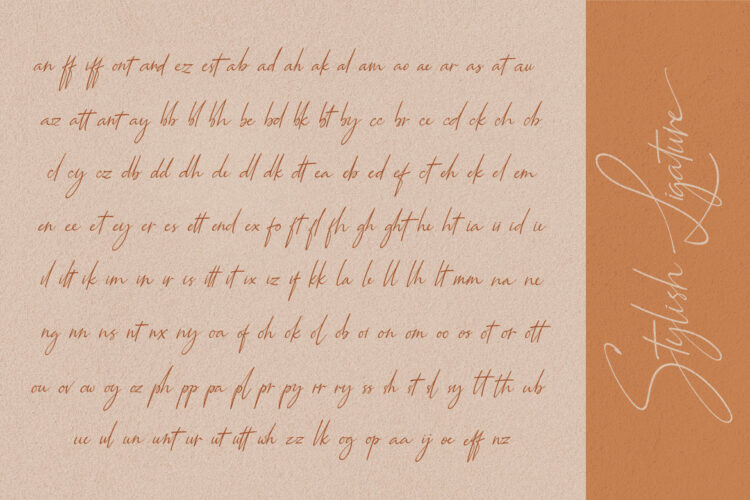 an ff iff ont and ez est ab ad ah ak al am ao ae ar as at au
az att ant ay bb bl bh be bd bk bt by cc br ce cd ck ch ob
cl cy cz db dd dh de dl dk dt ea eb ed ef ct eh ek el em
en ee et ey er es ett end ex fo ft fl fh gh ght he ht ia ii id ie
il ilt ik im in ir is itt it ix iz if kk la le ll lh lt mm na ne
ng nn ns nt nx ny oa of oh ok ol ob oi on om oo os ot or ott
ou ov ow oy oz ph pp pa pl pr py rr ry ss sh st sl sy tt th ub
ue ul un unt ur ut utt wh zz lk og op aa ij oe eff nz
Stylish Ligature